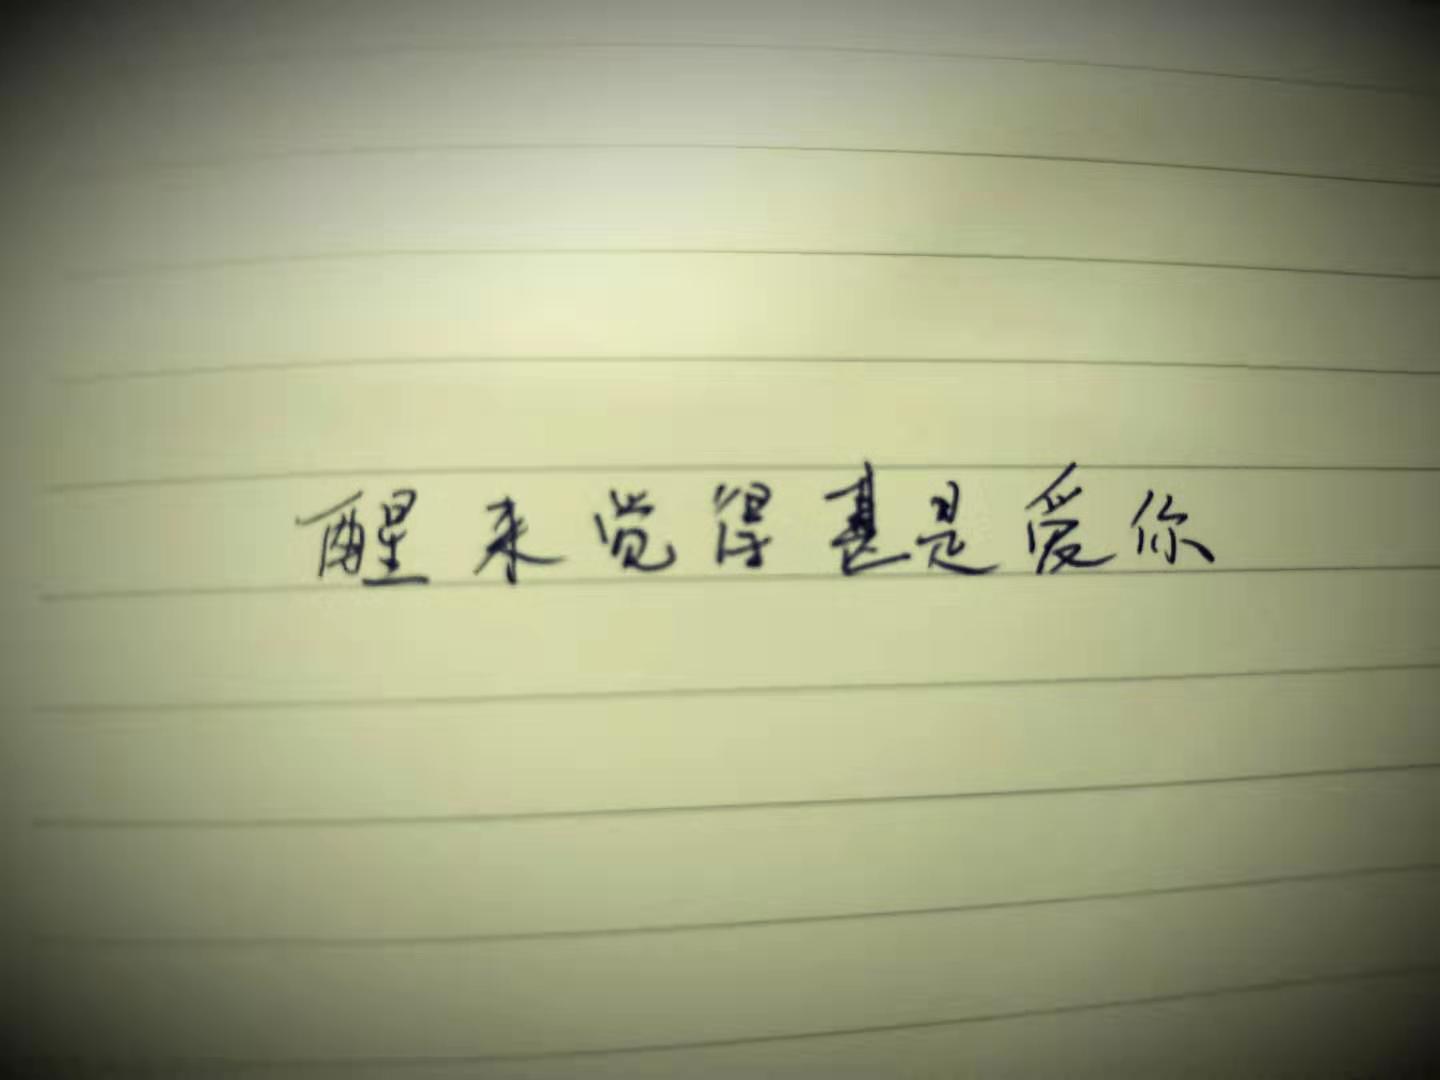 醒来觉得甚是爱你